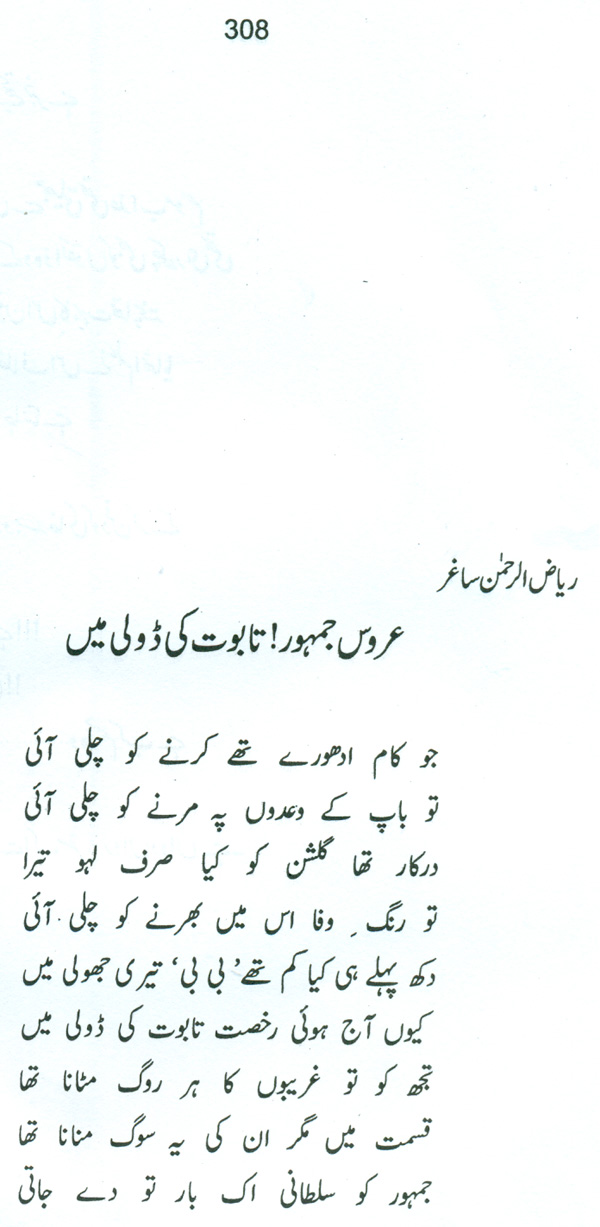 308
ریاض الرحمٰن ساغر
عروس جمہور! تابوت کی ڈولی میں
جو کام ادھورے تھے کرنے کو چلی آئی
تو باپ کے وعدوں پہ مرنے کو چلی آئی
درکار تھا گلشن کو کیا صرف لہو تیرا
تو رنگِ وفا اس میں بھرنے کو چلی آئی
دکھ پہلے ہی کیا کم تھے ’بی بی‘ تیری جھولی میں
کیوں آج ہوئی رخصت تابوت کی ڈولی میں
تجھ کو تو غریبوں کا ہر روگ مٹانا تھا
قسمت میں مگر ان کی یہ سوگ منانا تھا
جمہور کو سلطانی اک بار تو دے جاتی